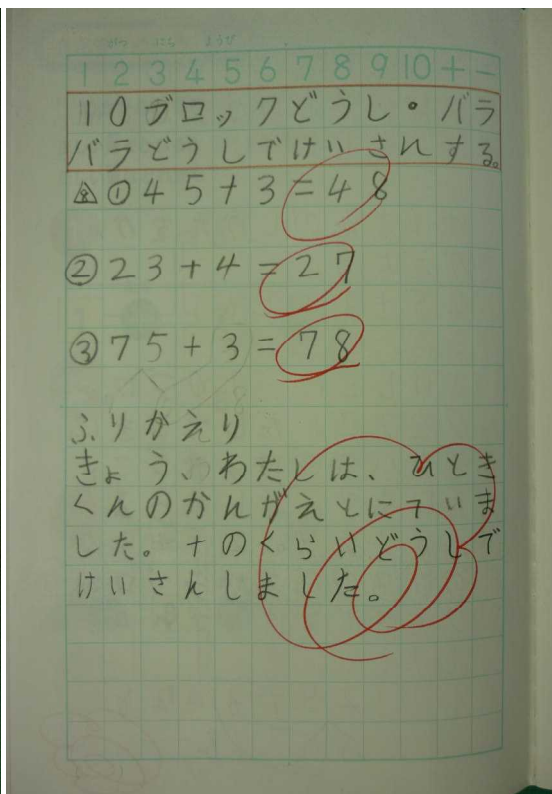 がつ にち ようび
1 2 3 4 5 6 7 8 9 10 + -
10ブロックどうし・バラ
バラどうしでけいさんする。
①45+3=48
②23+4=27
③75+3=78
ふりかえり
きょう、わたしは、ひとき
くんのかんがえとにていま
した。十のくらいどうしで
けいさんしました。